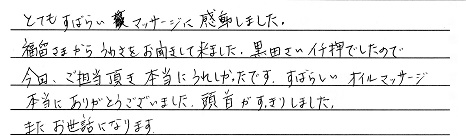 とてもすばらいマッサージに感動しました。
福留さまからうわさをお聞きして来ました。黒田さんイチ押でしたので
今回、ご担当頂き本当にうれしかったです。すばらしい オイルマッサージ
本当にありがとうございました。頭首がすっきりしました。
またお世話になります